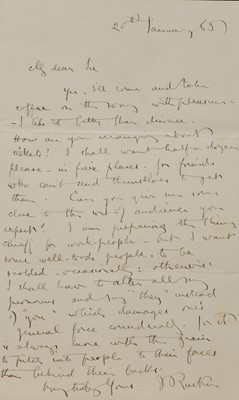 20th January 65
My dear Sir
Yes. I'll come and take
coffee on the way with pleasure -
- I like it better than dinner.
How are you arranging about
tickets? I shall want half a dozen
please - in fair places. for friends
who can't send themselves to get
them. Can you give me some
clue to the sort of audience you
expect? I am preparing the thing
chiefly for work-people - but I want
some well-to-do people, to be
scolded - occasionally: otherwise
I shall have to alter all my
pronouns and say "they" instead
of "you" which damages one's
general force considerably. For it
is always more with the grain
to pitch into people to their faces
than behind their backs.
truly Yours
J Ruskin